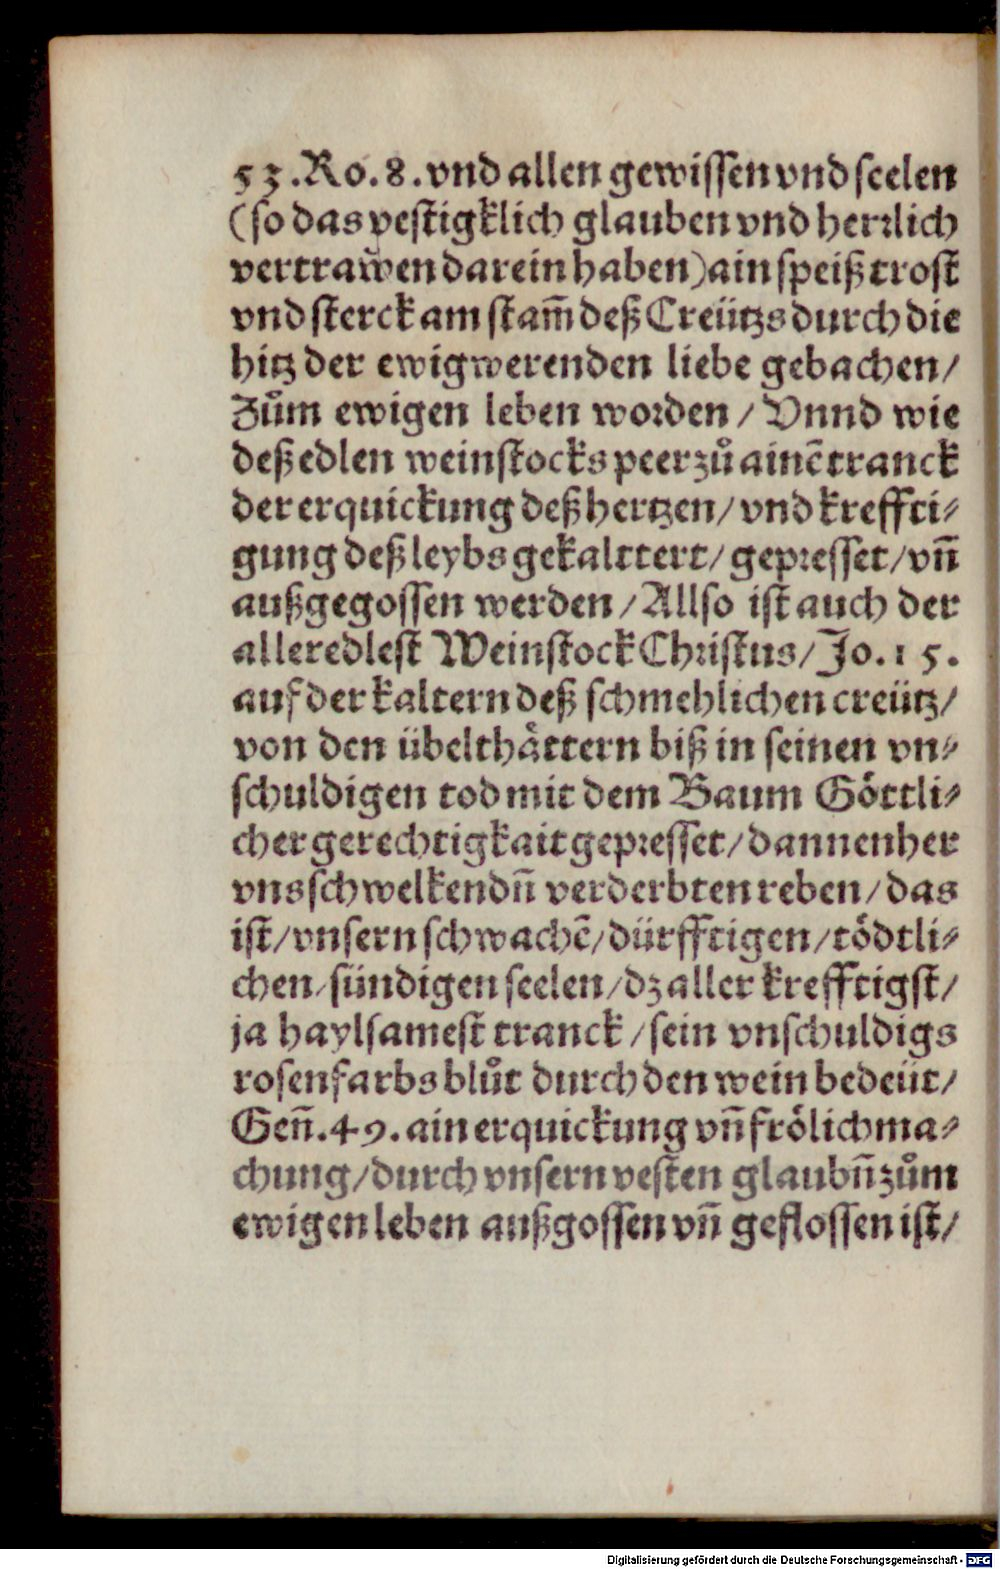 53. Ro. 8. vnd allen gewissen vnd seelen
(so das vestigklich glauben vnd hertzlich
vertrawen darein haben) ain speiß trost
vnd sterck am stam̄ deß Creützs durch die
hitz der ewigwerenden liebe gebachen/
Zům ewigen leben worden/ Vnnd wie
deß edlen weinstocks peer zů ainē tranck
der erquickung deß hertzen/ vnd kreffti⸗
gung deß leybs gekalttert/ gepresset/ vn̄
außgegossen werden/ Allso ist auch der
alleredlest Weinstock Christus/ Jo. 15.
auf der kaltern deß schmehlichen creütz/
von den übelthåttern biß in seinen vn⸗
schuldigen tod mit dem Baum Göttli⸗
cher gerechtigkait gepresset/ dannenher
vns schwelkendn̄ verderbten reben/ das
ist/ vnsern schwachē/ dürfftigen/ tödtli⸗
chen/ sündigen seelen/ dz aller krefftigst/
ja haylsamest tranck/ sein vnschuldigs
rosenfarbs blůt durch den wein bedeüt/
Gen̄. 49. ain erquickung vn̄ frölichma⸗
chung/ durch vnsern vesten glaubn̄ zům
ewigen leben außgossen vn̄ geflossen ist/
Digitalisierung gefördert durch die Deutsche Forschungsgemeinschaft - DFG